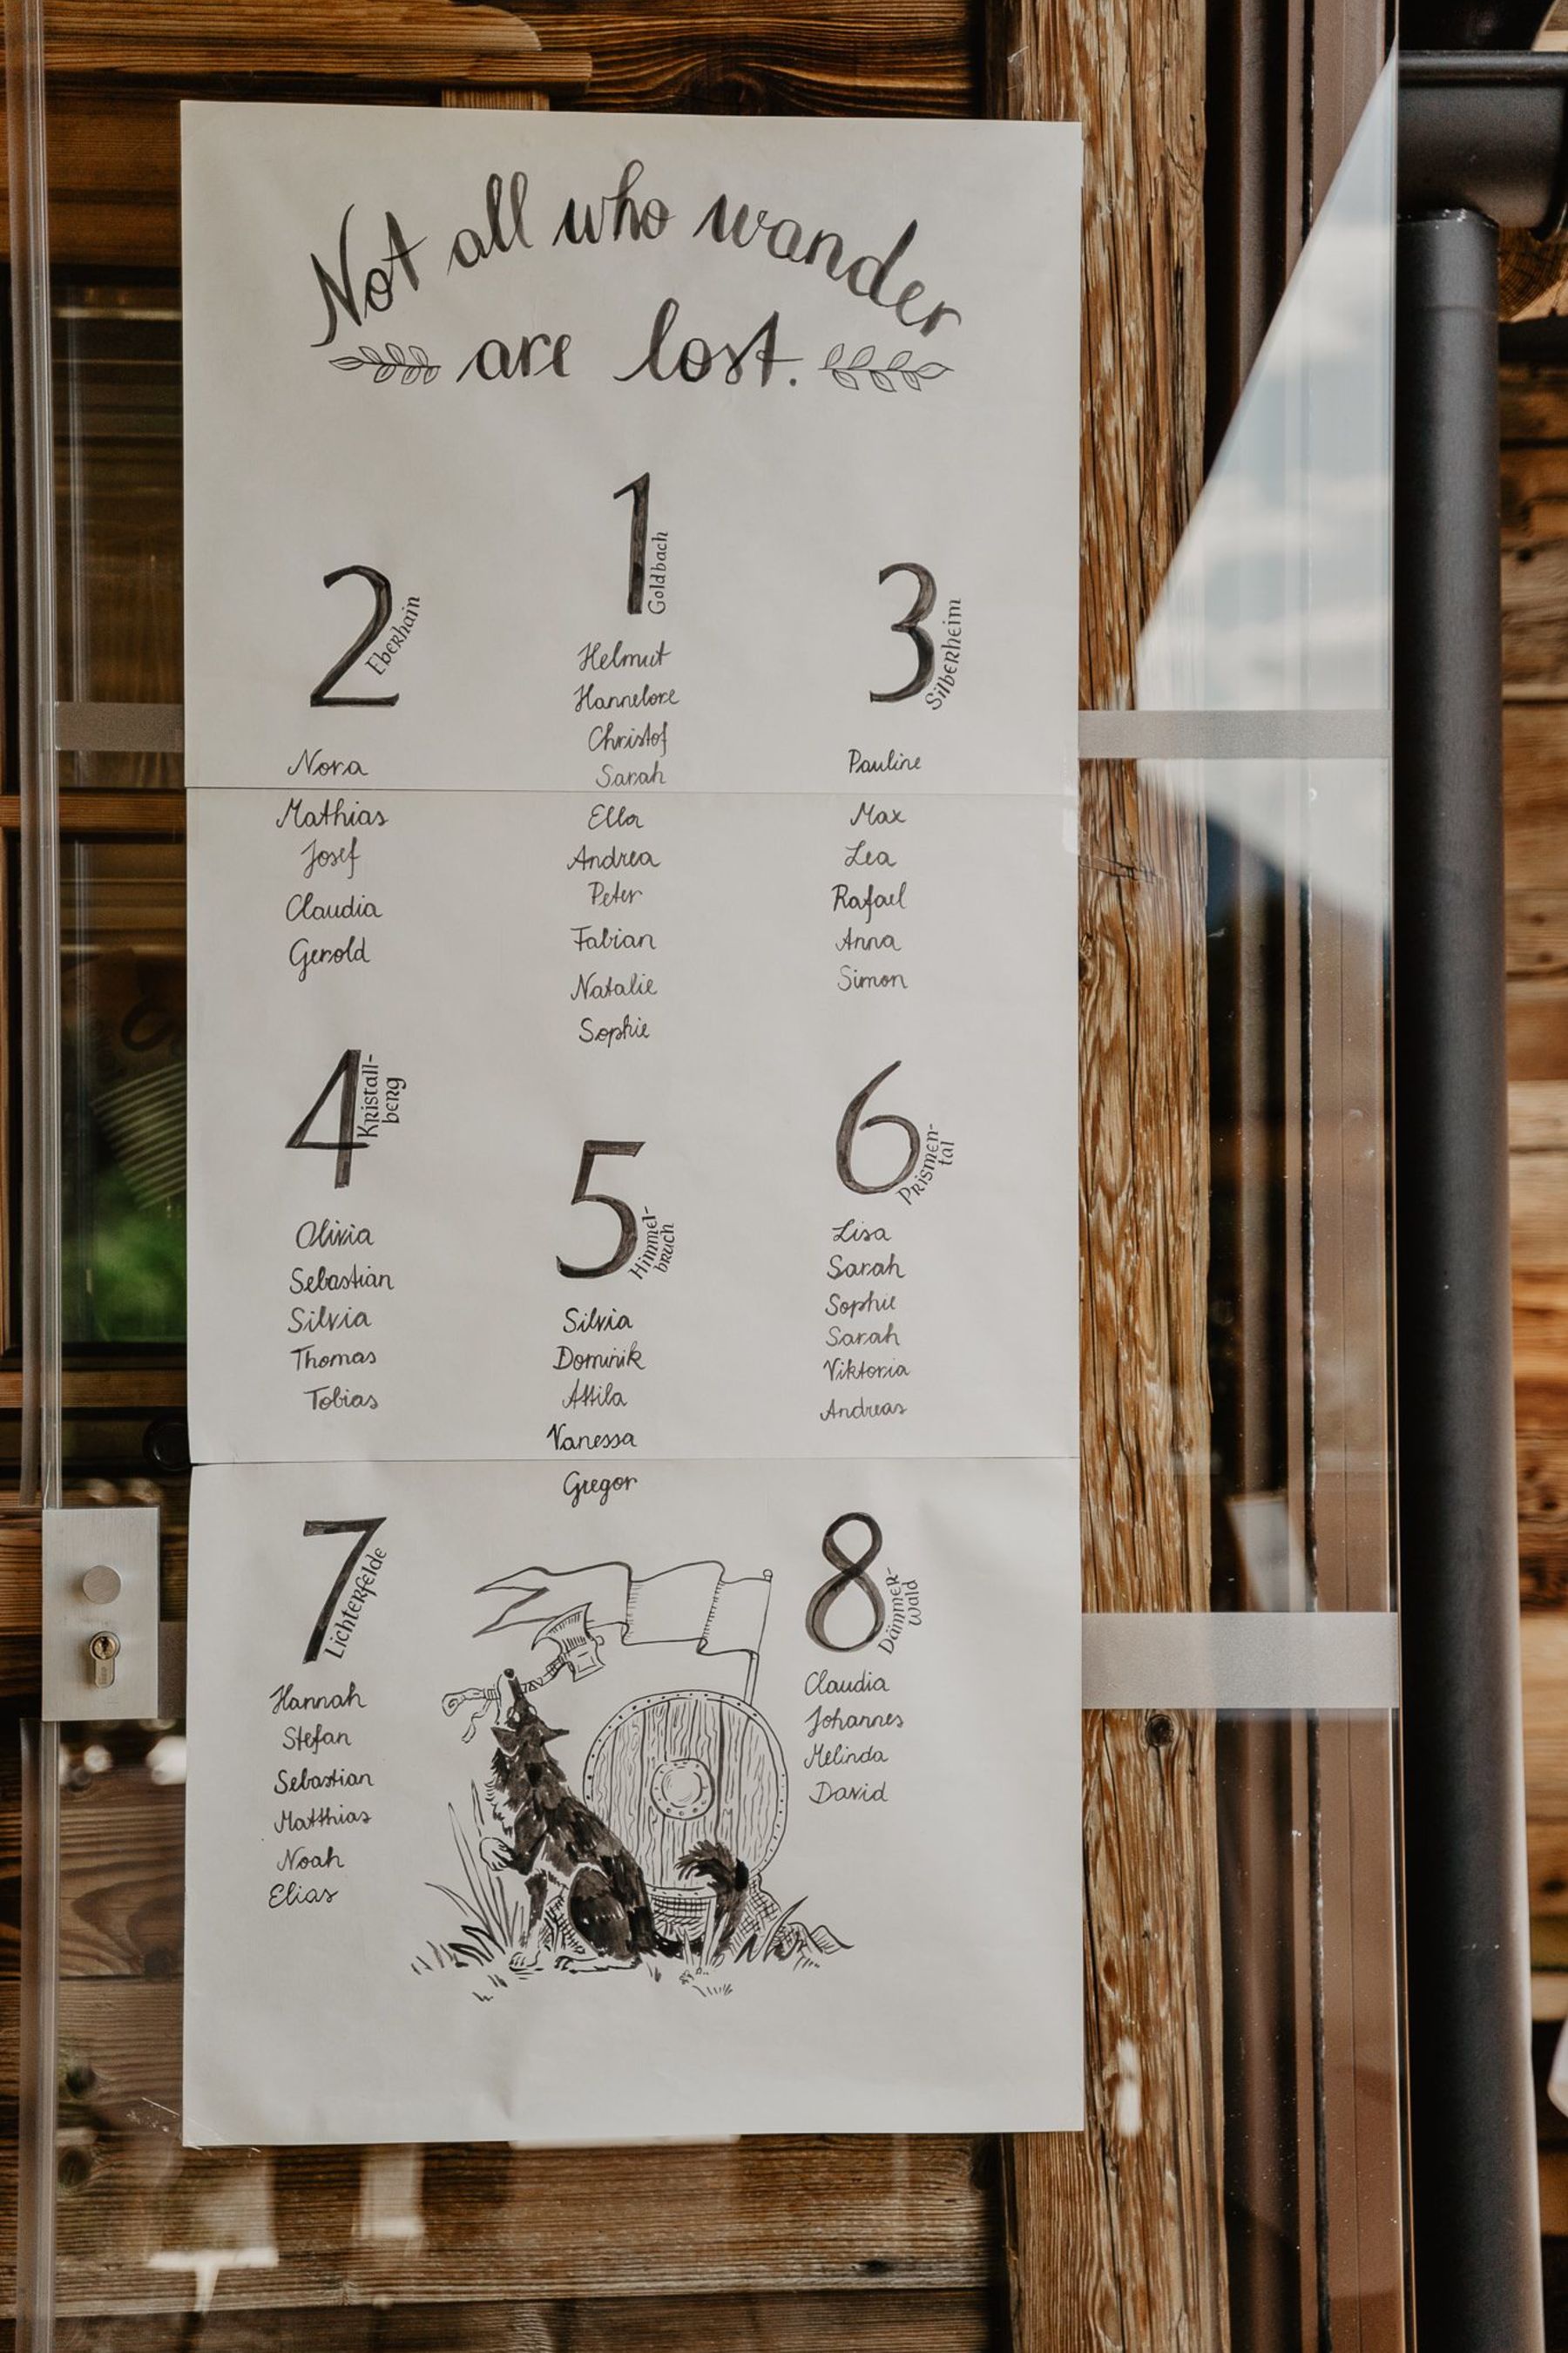 Not all who wander
are lost.
1
Goldbach
Helmut
Hannelore
Christof
Sarah
Ella
Andrea
Peter
Fabian
Natalie
Sophie
2
Eberhain
Nora
Mathias
Josef
Claudia
Gerold
3
Silberheim
Pauline
Max
Lea
Rafael
Anna
Simon
4
Kristall-
berg
Olivia
Sebastian
Silvia
Thomas
Tobias
5
Himmel-
bruch
Silvia
Dominik
Attila
Vanessa
Gregor
6
Prismen-
tal
Lisa
Sarah
Sophie
Sarah
Viktoria
Andreas
7
Lichterfelde
Hannah
Stefan
Sebastian
Matthias
Noah
Elias
8
Dämmer-
wald
Claudia
Johannes
Melinda
David